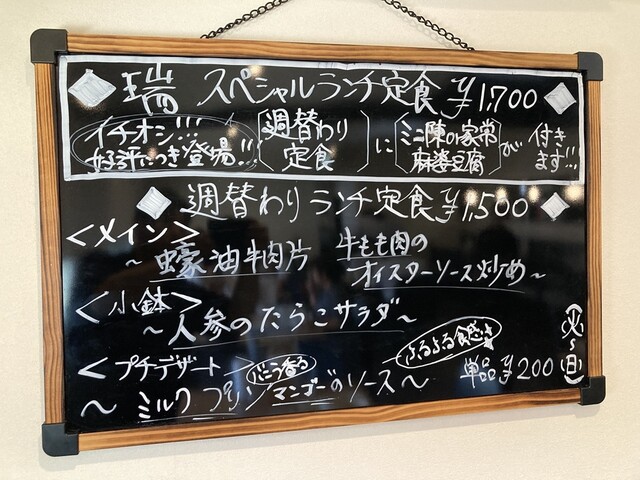 瑞 スペシャルランチ定食 ¥1,700
イチオシ!!!
好評につき登場!!!
週替わり
定食
に
ミニ陳の家常
麻婆豆腐
が
付き
ます!!!
週替わりランチ定食¥1,500
<メイン>
~蠔油牛肉片 牛もも肉の
オイスターソース炒め~
<小鉢>
~人参のたらこサラダ~
<プチデザート>
ぷるぷる食感
~ミルクプリン マンゴーのソース~
単品¥200
(火~日)